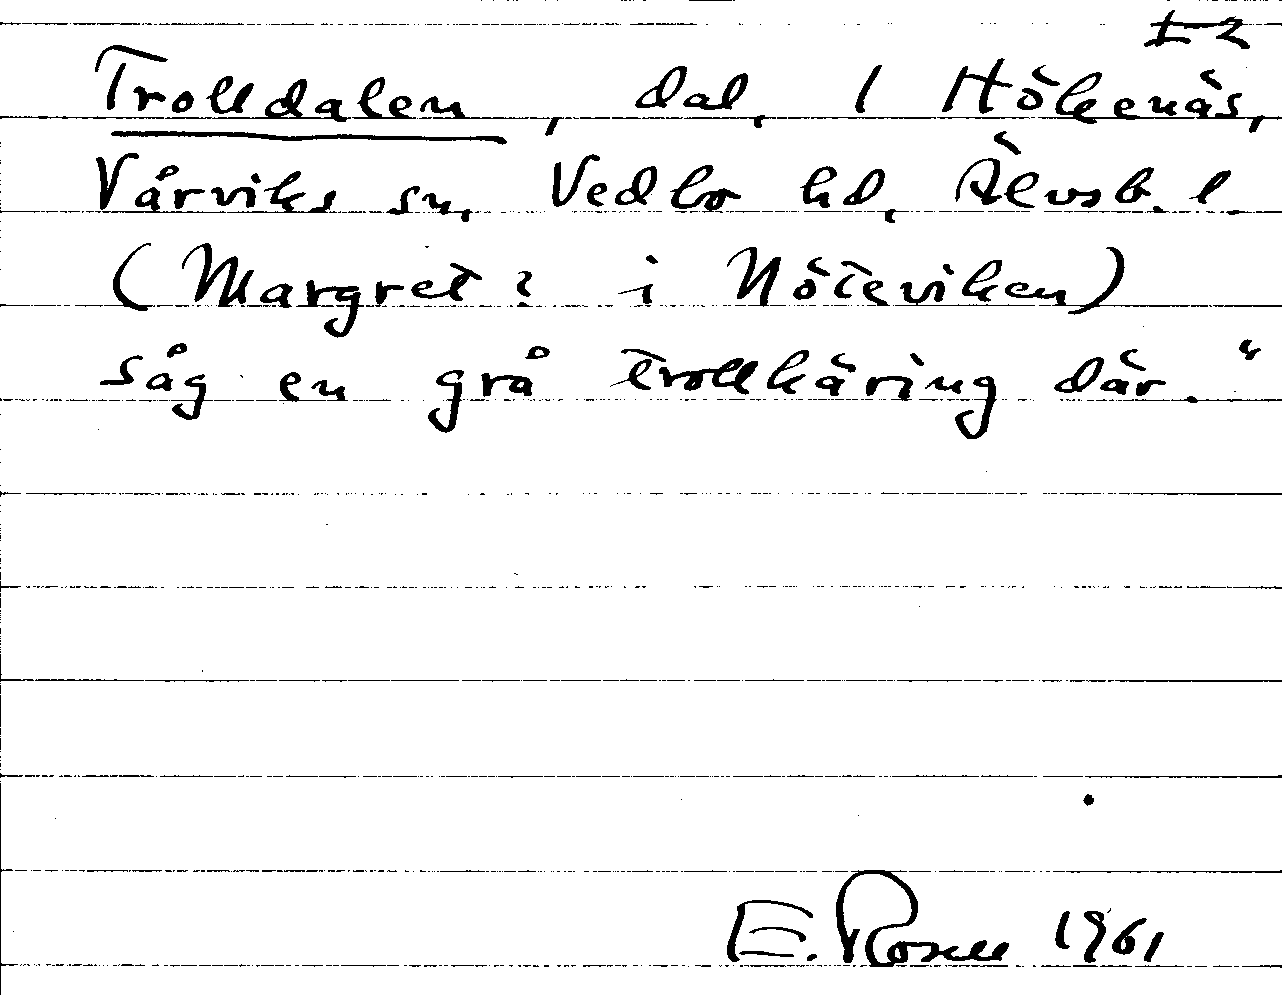 I-2
Trolldalen, dal, 1 Hökenäs,
Vårviks sn, Vedbo hd, Älvsb. l.
(Margret? i Nöteviken)
såg en grå trollkäring där."
E. Rosell 1961